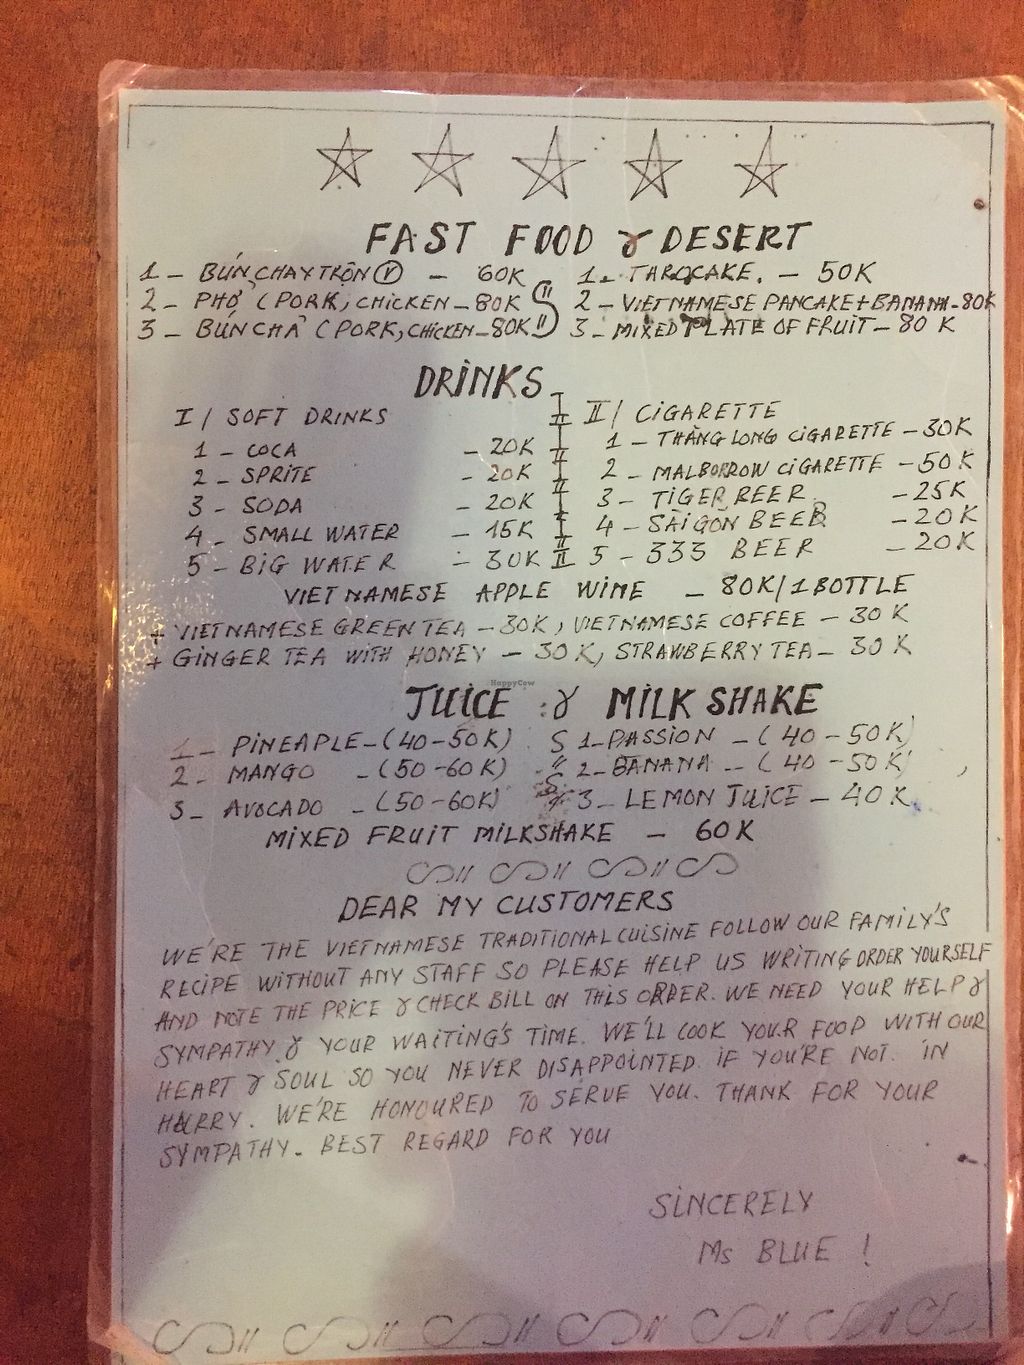 FAST FOOD & DESERT
1 - BÚN CHAY TRỘN (V) - 60K
2 - PHỞ (PORK, CHICKEN - 80K
3 - BÚN CHẢ (PORK, CHICKEN - 80K
1 - TAROCAKE. - 50K
2 - VIETNAMESE PANCAKE + BANANA - 80K
3 - MIXED PLATE OF FRUIT - 80K
DRINKS
I / SOFT DRINKS
1 - COCA - 20K
2 - SPRITE - 20K
3 - SODA - 20K
4 - SMALL WATER - 15K
5 - BIG WATER - 30K
II / CIGARETTE
1 - THĂNG LONG CIGARETTE - 30K
2 - MALBORROW CIGARETTE - 50K
3 - TIGER BEER - 25K
4 - SÀI GÒN BEER - 20K
5 - 333 BEER - 20K
VIETNAMESE APPLE WINE - 80K/1 BOTTLE
+ VIETNAMESE GREEN TEA - 30K, VIETNAMESE COFFEE - 30K
+ GINGER TEA WITH HONEY - 30K, STRAWBERRY TEA - 30K
HappyCow
JUICE & MILKSHAKE
1 - PINEAPLE - (40-50K)
2 - MANGO - (50-60K)
3 - AVOCADO - (50-60K)
1 - PASSION - (40-50K)
2 - BANANA - (40-50K)
3 - LEMON JUICE - 40K
MIXED FRUIT MILKSHAKE - 60K
DEAR MY CUSTOMERS
WE'RE THE VIETNAMESE TRADITIONAL CUISINE FOLLOW OUR FAMILY'S
RECIPE WITHOUT ANY STAFF SO PLEASE HELP US WRITING ORDER YOURSELF
AND NOTE THE PRICE & CHECK BILL ON THIS ORDER. WE NEED YOUR HELP &
SYMPATHY & YOUR WAITING'S TIME. WE'LL COOK YOUR FOOD WITH OUR
HEART & SOUL SO YOU NEVER DISAPPOINTED IF YOU'RE NOT IN
HURRY. WE'RE HONOURED TO SERVE YOU. THANK FOR YOUR
SYMPATHY. BEST REGARD FOR YOU
SINCERELY
Ms BLUE !